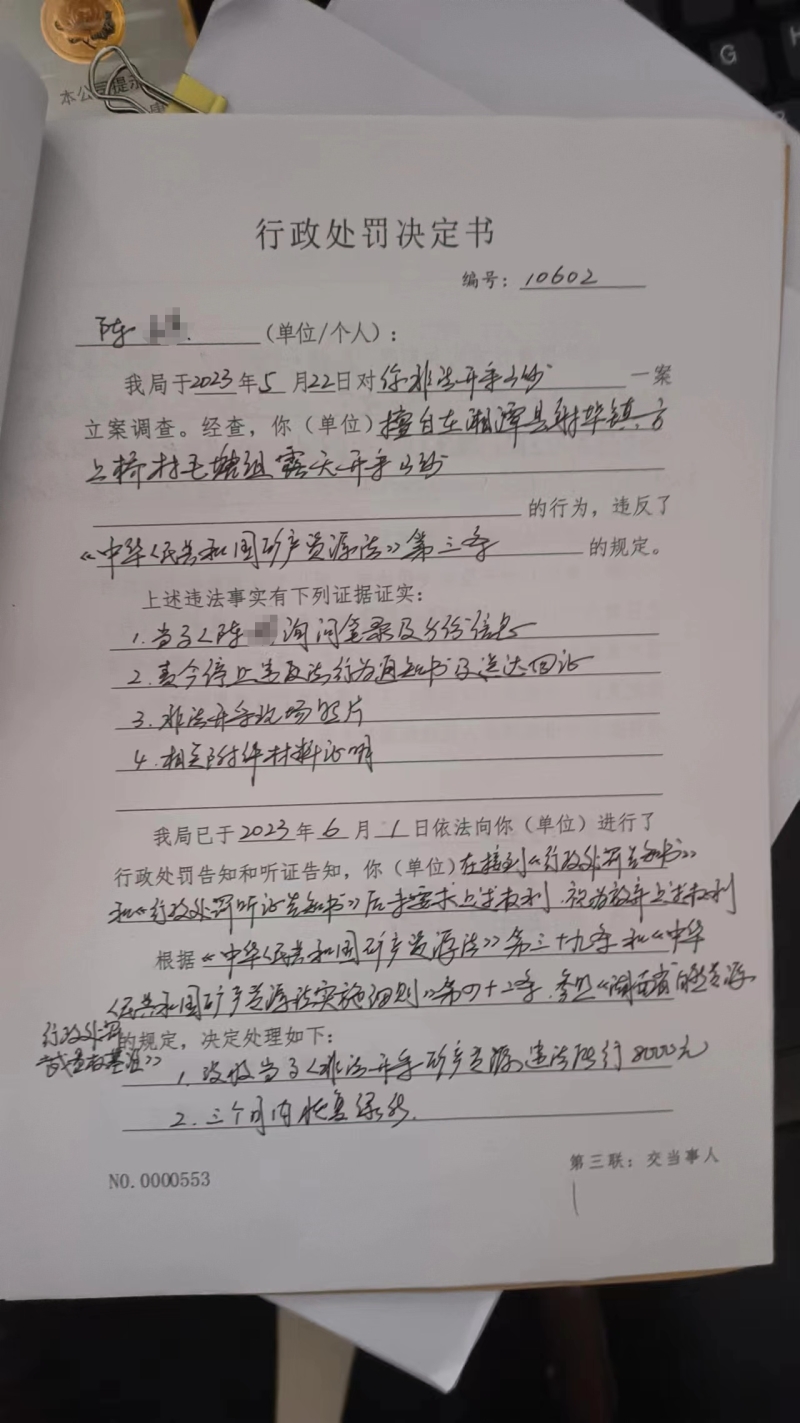 本公司提示
G
行政处罚决定书
编号：10602
陈 （单位/个人）：
我局于2023年5月22日对你非法开采山砂一案
立案调查。经查，你（单位）擅自在湘潭县射埠镇方
上桥村毛塘组露天开采山砂
的行为，违反了
《中华人民共和国矿产资源法》第三条的规定。
上述违法事实有下列证据证实：
1.当事人陈 询问笔录及身份信息
2.责令停止违反法行为通知书及送达回证
3.非法开采现场照片
4.相关附件材料证明
我局已于2023年6月1日依法向你（单位）进行了
行政处罚告知和听证告知，你（单位）在接到《行政处罚告知书》
和《行政处罚听证告知书》后未要求上述权利，视为放弃上述权利
根据《中华人民共和国矿产资源法》第三十九条和《中华
人民共和国矿产资源法实施细则》第四十二条，参照《湖南省自然资源
行政处罚
裁量权基准》的规定，决定处理如下：
1.没收当事人非法开采矿产资源违法所得8000元
2.三个月内恢复绿化.
NO.0000553
第三联：交当事人